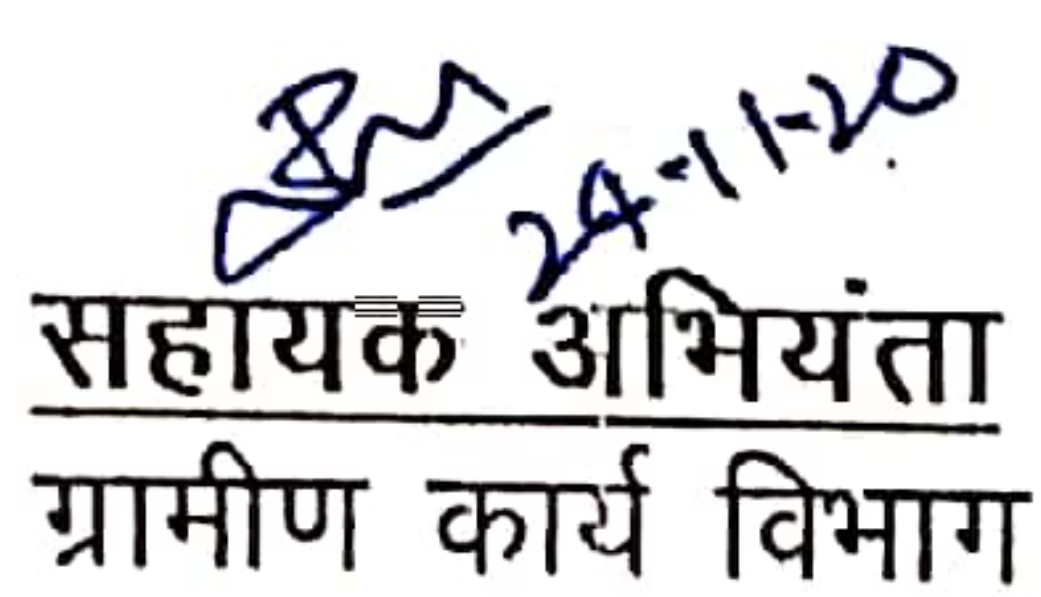 24-11-20
सहायक अभियंता
ग्रामीण कार्य विभाग